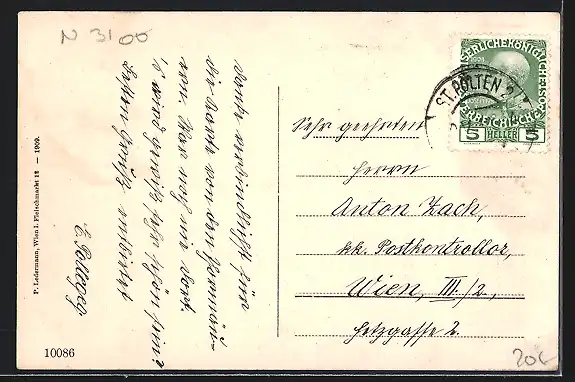 N 3100
Danke verbindlichst für
die Karte von den Normän-
ner. War noch nie dort.
's wird gewiß sehr schön sein?
Besten Gruß entbietet
P. Ledermann, Wien I. Fleischmarkt 12 — 1909.
10086
KAISERLICHE KÖNIGLICHE ÖSTERREICHISCHE
5 HELLER 5
ST. PÖLTEN 2
Sehr geehrten
Herrn
Anton Zach,
kk. Postkontrollor,
Wien, III/2,
Hetzgasse 2.
20L